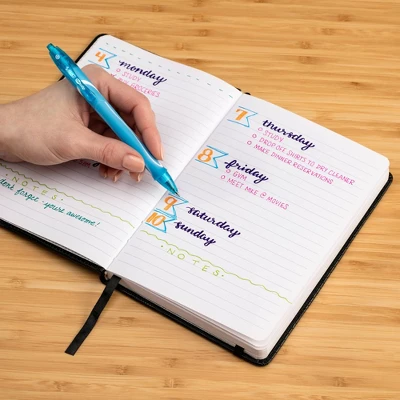 4
monday
STUDY
GROCERIES
NOTES
dont forget you're awesome!
7
thursday
STUDY
DROP OFF SHIRTS TO DRY CLEANER
MAKE DINNER RESERVATIONS
8
friday
GYM
MEET MIKE @ MOVIES
9
saturday
10
sunday
NOTES